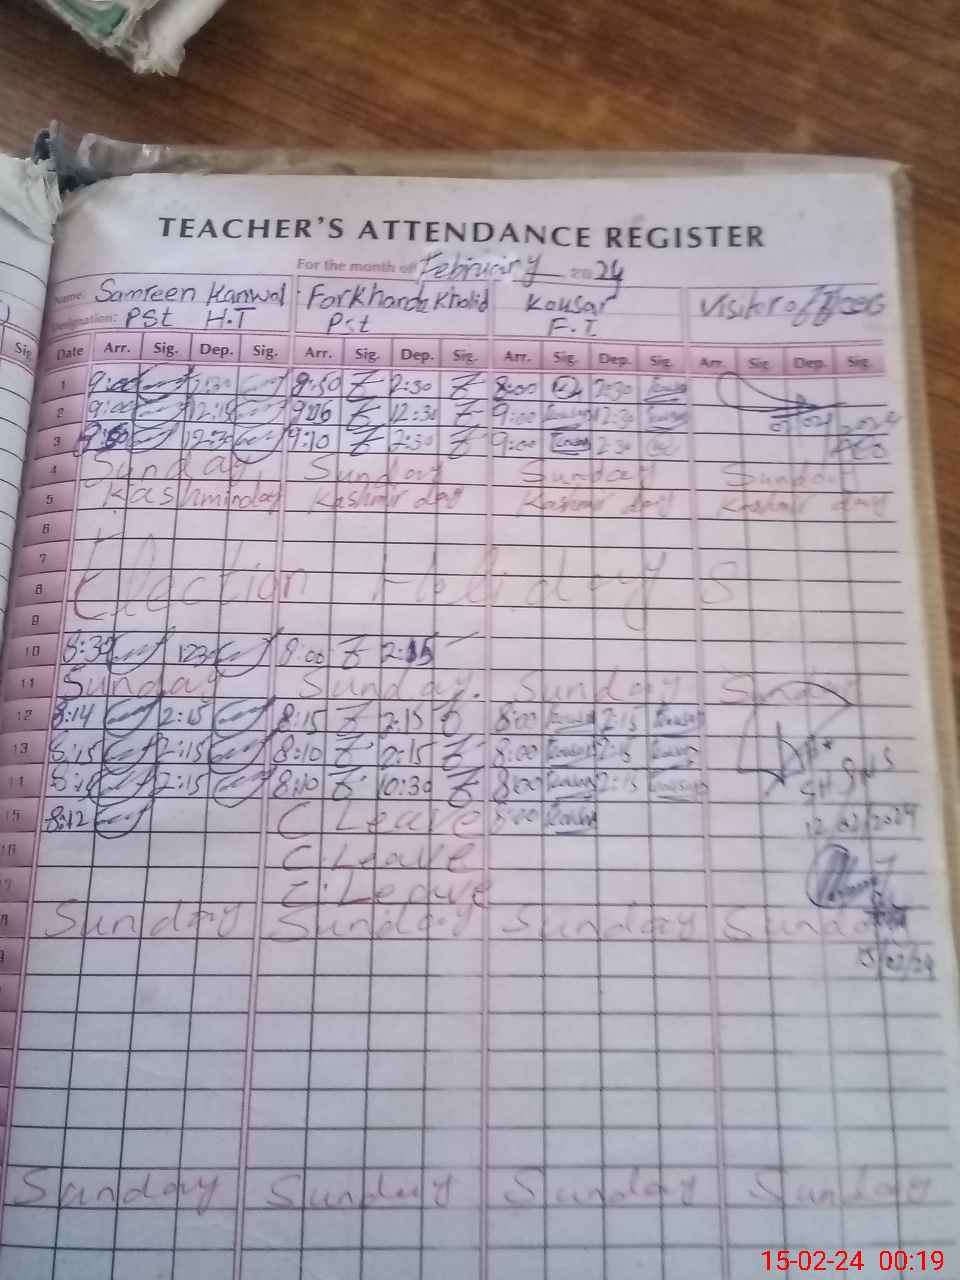 TEACHER'S ATTENDANCE REGISTER
For the month of February 2024
Name: Samreen Kanwal Farkhanda Khalid Kousar Visitor officers
Designation: PSt H.T Pst F.T
Sig
Date Arr. Sig. Dep. Sig. Arr. Sig. Dep. Sig. Arr. Sig. Dep. Sig. Arr. Sig. Dep. Sig.
1 9:00 2:30 8:50 2:30 8:00 2:30
2 9:00 12:15 9:06 12:30 9:00 Kousar 12:30 Kousar
3 9:10 2:30 9:00 Kousar 2:30
4 Sunday Sunday Sunday Sunday
5 Kashmirday Kashmir day Kashmir day Kashmir day
6
7
8 Election Holiday S
9
10 8:30 1230 8:00 2:15
11 Sunday Sunday. Sunday Sunday
12 8:14 2:15 8:15 2:15 8:00 Kousar 2:15 Kousar
13 8:15 2:15 8:10 2:15 8:00 Kousar 2:15 Kousar
14 2:15 8:10 10:30 8:00 Kousar 2:15 Kousar
15 8:12 C Leave 8:00 Kousar 12/02/2024
16 C.Leave
17 C.Leave
18 Sunday Sunday Sunday Sunday
15/02/24
Sunday Sunday Sunday Sunday
15-02-24 00:19